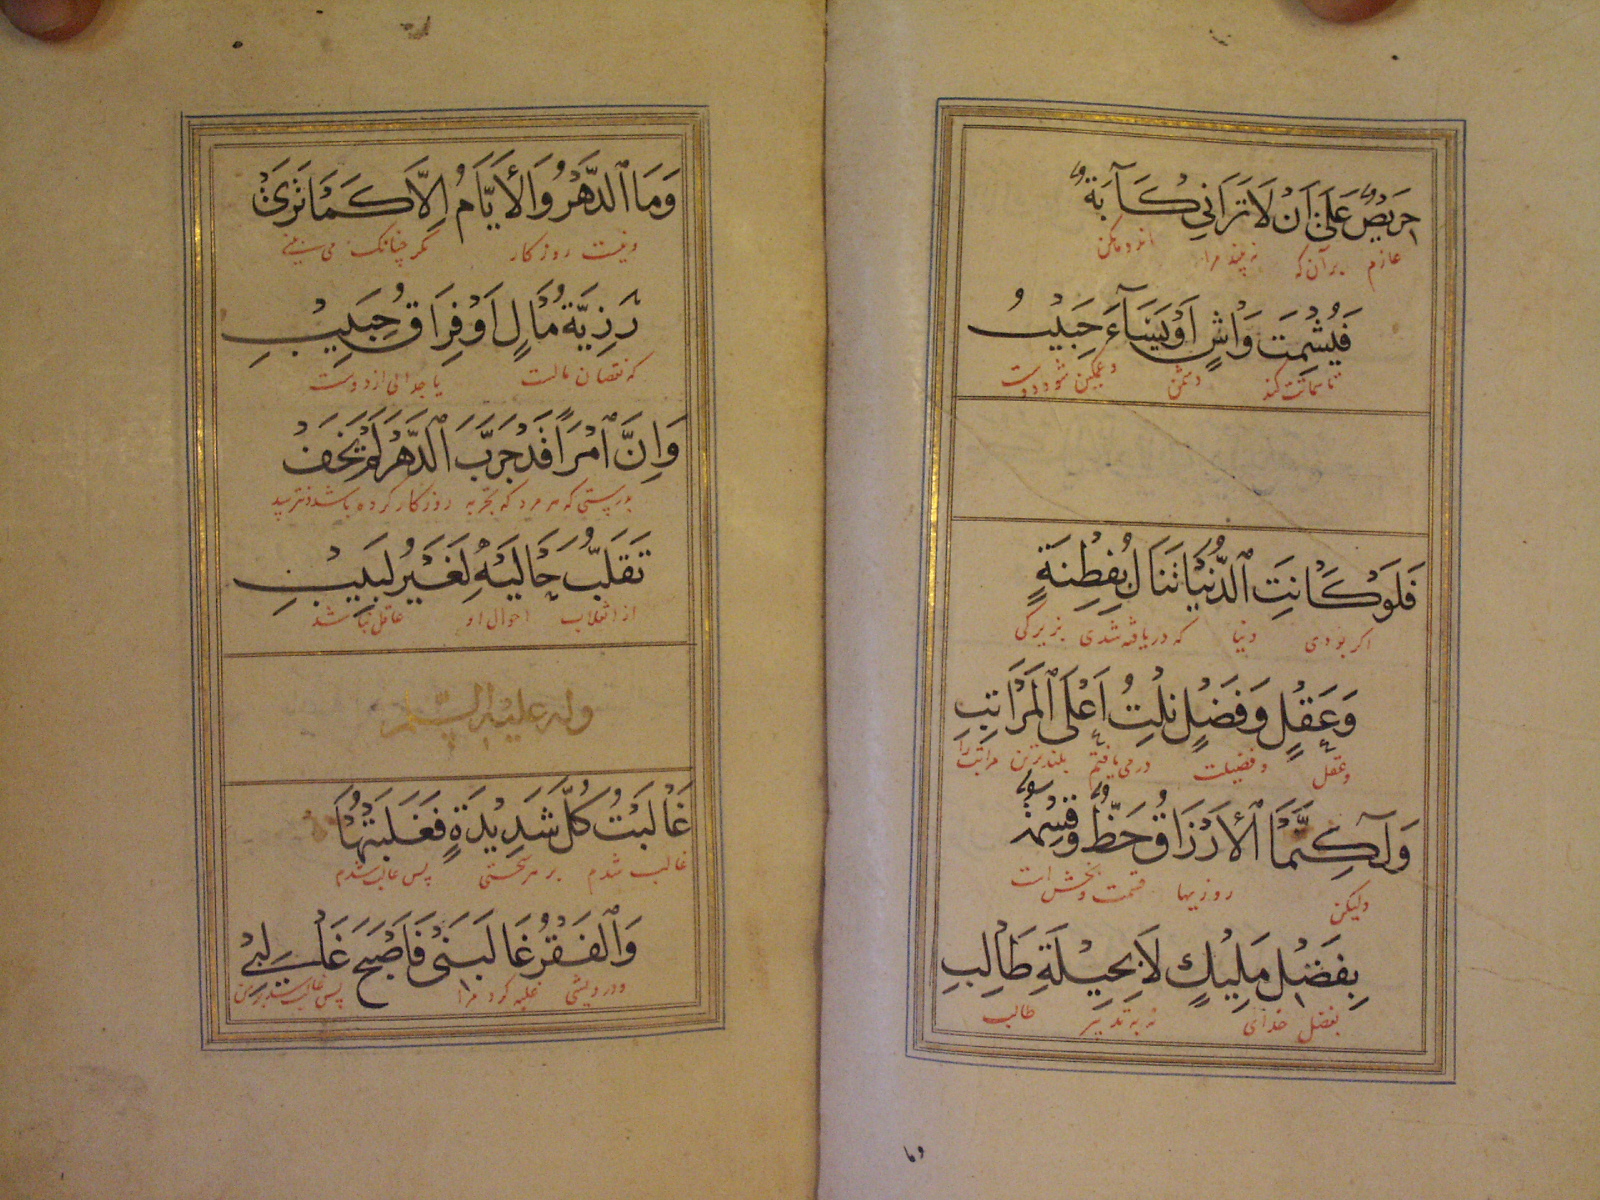 حَرِيصٌ عَلَىٰ اَنْ لَا تَرَانِي كَآبَةٌ
عازم بر آن که نه بیند مرا اندوهگین
فَيُشْمِتَ وَاشٍ اَوْ يُسَآءَ حَبِيبُ
تا شماتت کند دشمن و غمگین شود دوست
فَلَوْ كَانَتِ ٱلدُّنْيَا تُنَالُ بِفِطْنَةٍ
اکر بودی دنیا که دریافته شدی بزیرکی
وَعَقْلٍ وَفَضْلٍ نِلْتُ اَعْلَى ٱلْمَرَاتِبِ
وعقل وفضیلت درمی یافتم بلندترین مراتب را
وَلٰكِنَّمَا ٱلْأَرْزَاقُ حَظٌّ وَقِسْمَةٌ
ولیکن روزیها قسمت و بخش است
بِفَضْلِ مَلِيكٍ لَا بِحِيلَةِ طَالِبِ
بفضل خدای نه به تدبیر طالب
وما
وَمَا ٱلدَّهْرُ وَٱلْأَيَّامُ اِلَّا كَمَا تَرَىٰ
ونیست روزکار مکر چنانک می بینی
رَزِيَّةُ مَالٍ اَوْ فِرَاقُ حَبِيبِ
که نقصان مالت یا جدایی از دوست
وَاِنَّ ٱمْرَأً قَدْ جَرَّبَ ٱلدَّهْرَ لَمْ يَخَفْ
بدرستی که هر مرد که تجربه روزکار کرده باشد نترسد
تَقَلُّبَ حَالَيْهِ لَغَيْرُ لَبِيبِ
از انقلاب احوال او عاقل نباشد
وله علیه السلام
غَالَبْتُ كُلَّ شَدِيدَةٍ فَغَلَبْتُهَا
غالب شدم بر هر سختی پس غالب شدم
وَٱلْفَقْرُ غَالَبَنِي فَاَصْبَحَ غَالِبِي
ودرویشی غلبه کرد مرا پس غالب شد بر من